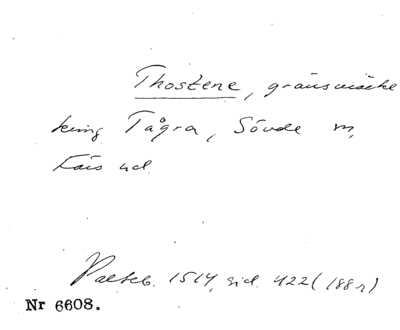 Thostene, gränsmärke
kring Tågra, Sövde m,
Färs hd.
Palteb. 1514, sid. 422 (188 r).
Nr 6608.